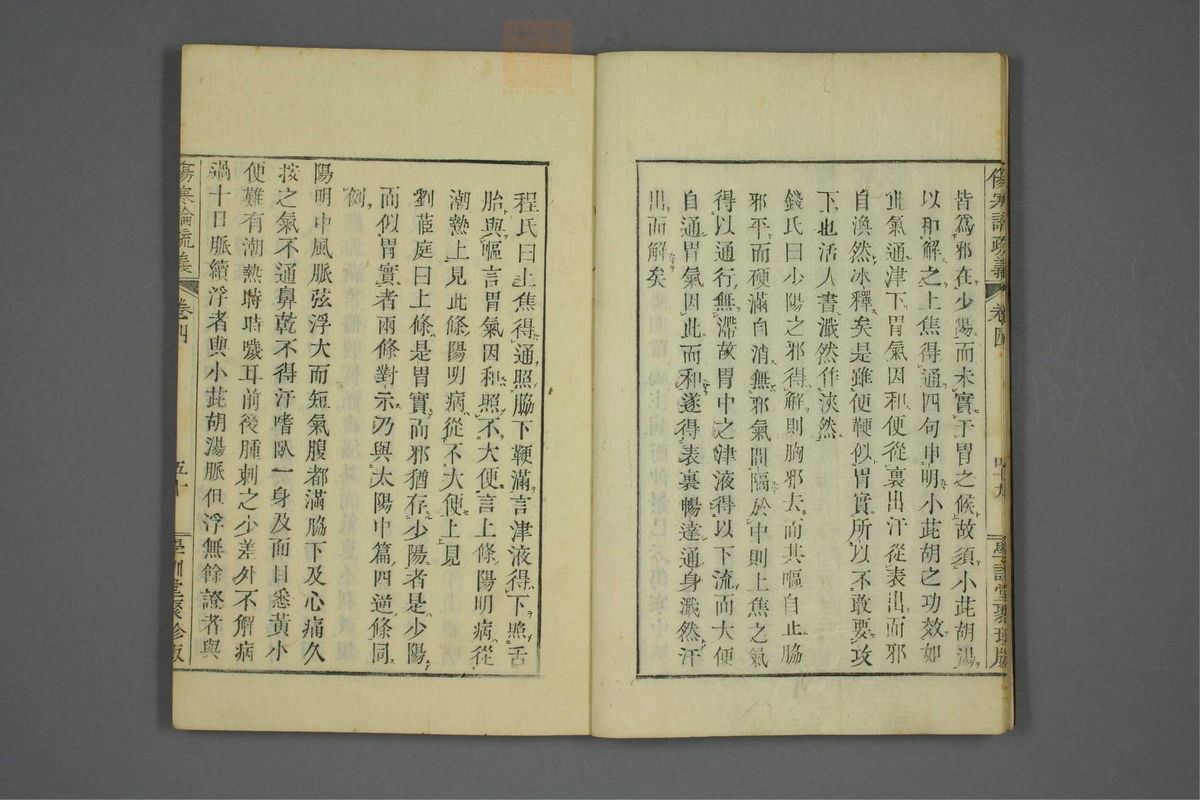 傷寒論疏義 卷四 四十九 學訓堂聚珍版
皆爲邪在少陽而未實于胃之候故須小茈胡湯
以和解之上焦得通四句申明小茈胡之功效如
此氣通津下胃氣因和便從裏出汗從表出而邪
自渙然冰釋矣是雖便鞕似胃實所以不敢要攻
下也活人書濈然作浹然
錢氏曰少陽之邪得解則胸邪去而其嘔自止脇
邪平而硬滿自消無邪氣間隔於中則上焦之氣
得以通行無滯故胃中之津液得以下流而大便
自通胃氣因此而和遂得表裏暢達通身濈然汗
出而解矣
程氏曰上焦得通照脇下鞕滿言津液得下照舌
胎與嘔言胃氣因和照不大便言上條陽明病從
潮熱上見此條陽明病從不大便上見
劉茝庭曰上條是胃實而邪猶存少陽者是少陽
而似胃實者兩條對示乃與太陽中篇四逆條同
例
陽明中風脈弦浮大而短氣腹都滿脇下及心痛久
按之氣不通鼻乾不得汗嗜臥一身及面目悉黃小
便難有潮熱時時噦耳前後腫刺之少差外不解病
過十日脈續浮者與小茈胡湯脈但浮無餘證者與
傷寒論疏義 卷四 五十 學訓堂聚珍版